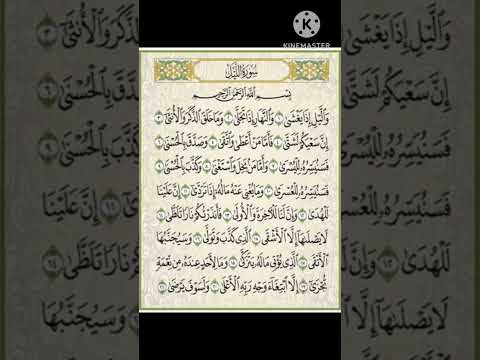 MADE WITH
KINEMASTER
سُورَةُ اللَّيْلِ
بِسْمِ اللَّهِ الرَّحْمَٰنِ الرَّحِيمِ
وَاللَّيْلِ إِذَا يَغْشَىٰ ١ وَالنَّهَارِ إِذَا تَجَلَّىٰ ٢ وَمَا خَلَقَ الذَّكَرَ وَالْأُنثَىٰ ٣
إِنَّ سَعْيَكُمْ لَشَتَّىٰ ٤ فَأَمَّا مَنْ أَعْطَىٰ وَاتَّقَىٰ ٥ وَصَدَّقَ بِالْحُسْنَىٰ ٦
فَسَنُيَسِّرُهُ لِلْيُسْرَىٰ ٧ وَأَمَّا مَن بَخِلَ وَاسْتَغْنَىٰ ٨ وَكَذَّبَ بِالْحُسْنَىٰ ٩
فَسَنُيَسِّرُهُ لِلْعُسْرَىٰ ١٠ وَمَا يُغْنِي عَنْهُ مَالُهُ إِذَا تَرَدَّىٰ ١١ إِنَّ عَلَيْنَا
لَلْهُدَىٰ ١٢ وَإِنَّ لَنَا لَلْآخِرَةَ وَالْأُولَىٰ ١٣ فَأَنذَرْتُكُمْ نَارًا تَلَظَّىٰ ١٤
لَا يَصْلَاهَا إِلَّا الْأَشْقَى ١٥ الَّذِي كَذَّبَ وَتَوَلَّىٰ ١٦ وَسَيُجَنَّبُهَا
الْأَتْقَى ١٧ الَّذِي يُؤْتِي مَالَهُ يَتَزَكَّىٰ ١٨ وَمَا لِأَحَدٍ عِندَهُ مِن نِّعْمَةٍ
تُجْزَىٰ ١٩ إِلَّا ابْتِغَاءَ وَجْهِ رَبِّهِ الْأَعْلَىٰ ٢٠ وَلَسَوْفَ يَرْضَىٰ ٢١